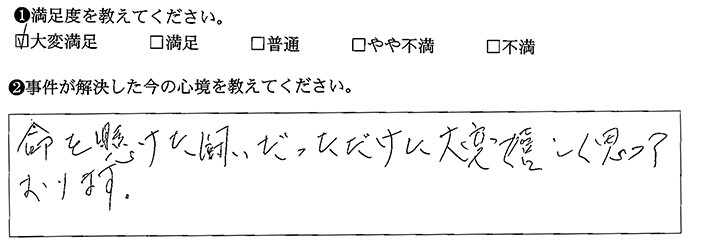 ❶満足度を教えてください。
☑大変満足 □満足 □普通 □やや不満 □不満
❷事件が解決した今の心境を教えてください。
命を懸けた闘いだっただけに大変嬉しく思って
おります。